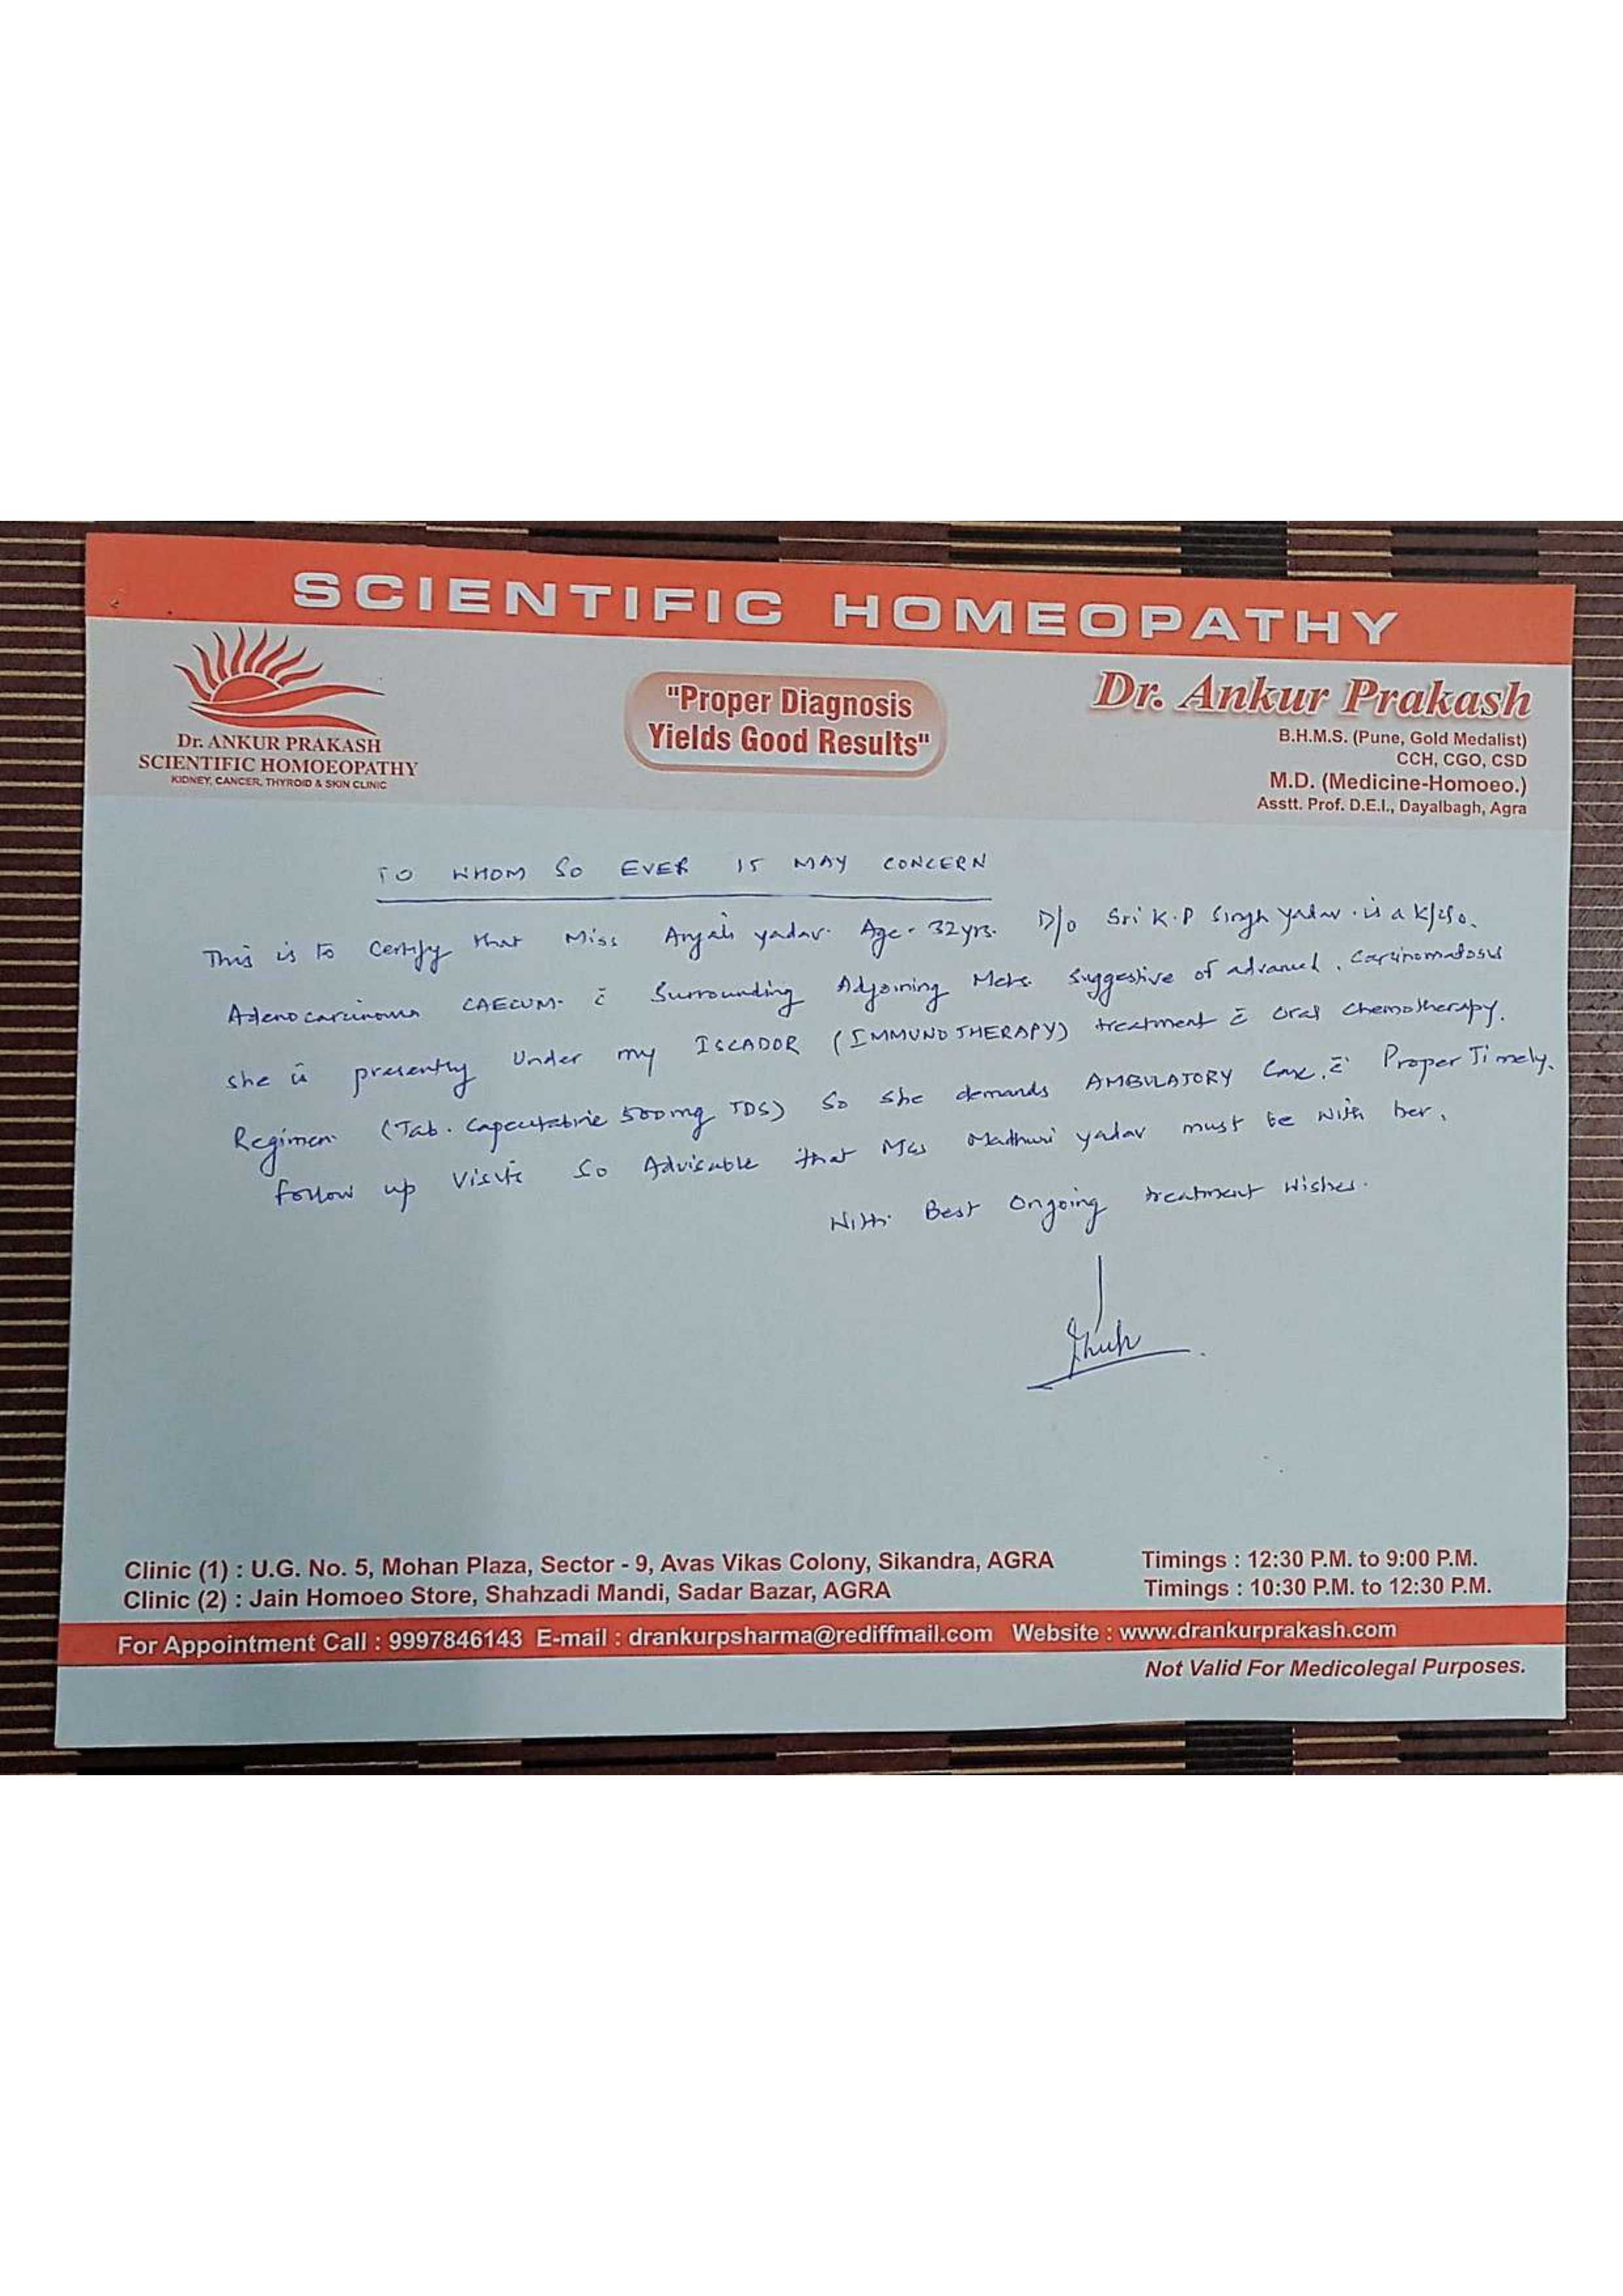 SCIENTIFIC HOMEOPATHY
Dr. ANKUR PRAKASH
SCIENTIFIC HOMOEOPATHY
KIDNEY, CANCER, THYROID & SKIN CLINIC
"Proper Diagnosis
Yields Good Results"
Dr. Ankur Prakash
B.H.M.S. (Pune, Gold Medalist)
CCH, CGO, CSD
M.D. (Medicine-Homoeo.)
Asstt. Prof. D.E.I., Dayalbagh, Agra
TO WHOM SO EVER IS MAY CONCERN
This is to certify that Miss Anjali yadav. Age - 32yrs. D/o Sri K.P Singh yadav. is a k/c/o.
Adenocarcinoma CAECUM- c̄ Surrounding Adjoining Mets. Suggestive of advanced, Carcinomatosis
she is presently under my ISCADOR (IMMUNOTHERAPY) treatment c̄ oral chemotherapy.
Regimen (Tab. Capecitabine 500mg TDS) So she demands AMBULATORY Care, c̄ Proper Timely.
follow up visits So Advisable that Mrs Madhuri yadav must be with her.
With Best Ongoing treatment wishes.
Clinic (1) : U.G. No. 5, Mohan Plaza, Sector - 9, Avas Vikas Colony, Sikandra, AGRA Timings : 12:30 P.M. to 9:00 P.M.
Clinic (2) : Jain Homoeo Store, Shahzadi Mandi, Sadar Bazar, AGRA Timings : 10:30 P.M. to 12:30 P.M.
For Appointment Call : 9997846143 E-mail : drankurpsharma@rediffmail.com Website : www.drankurprakash.com
Not Valid For Medicolegal Purposes.